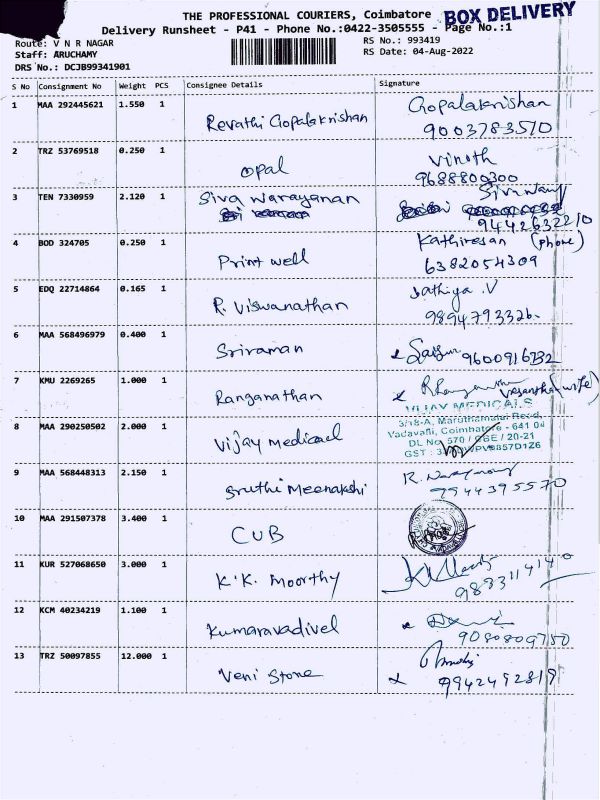 THE PROFESSIONAL COURIERS, Coimbatore
BOX DELIVERY
Delivery Runsheet - P41 - Phone No.:0422-3505555 - Page No.:1
Route: V N R NAGAR
RS No.: 993419
Staff: ARUCHAMY
RS Date: 04-Aug-2022
DRS No.: DCJB99341901
S No Consignment No Weight PCS Consignee Details Signature
1 MAA 292445621 1.550 1 Revathi Gopalakrishnan Gopalakrishan
9003783510
2 TRZ 53769518 0.250 1 opal Vinoth
9688800300
3 TEN 7330959 2.120 1 Siva Narayanan
9442632210
4 BOD 324705 0.250 1 Print well Kathiresan (phone)
6382054309
5 EDQ 22714864 0.165 1 R. Viswanathan Sathiya . V
9894793326.
6 MAA 568496979 0.400 1 Sriraman
9600916732
7 KMU 2269265 1.000 1 Ranganathan Vasantha (wife)
8 MAA 290250502 2.000 1 Vijay Medical
VIJAY MEDICALS
3/18-A, Maruthamalai Road,
Vadavalli, Coimbatore - 641 04
DL No 570 / CBE / 20-21
GST :
9 MAA 568448313 2.150 1 Sruthi Meenakshi
9944395570
10 MAA 291507378 3.400 1 CUB
11 KUR 527068650 3.000 1 K.K. Moorthy
12 KCM 40234219 1.100 1 Kumaravadivel
9080809750
13 TRZ 50097855 12.000 1 Veni Stone
9942492819